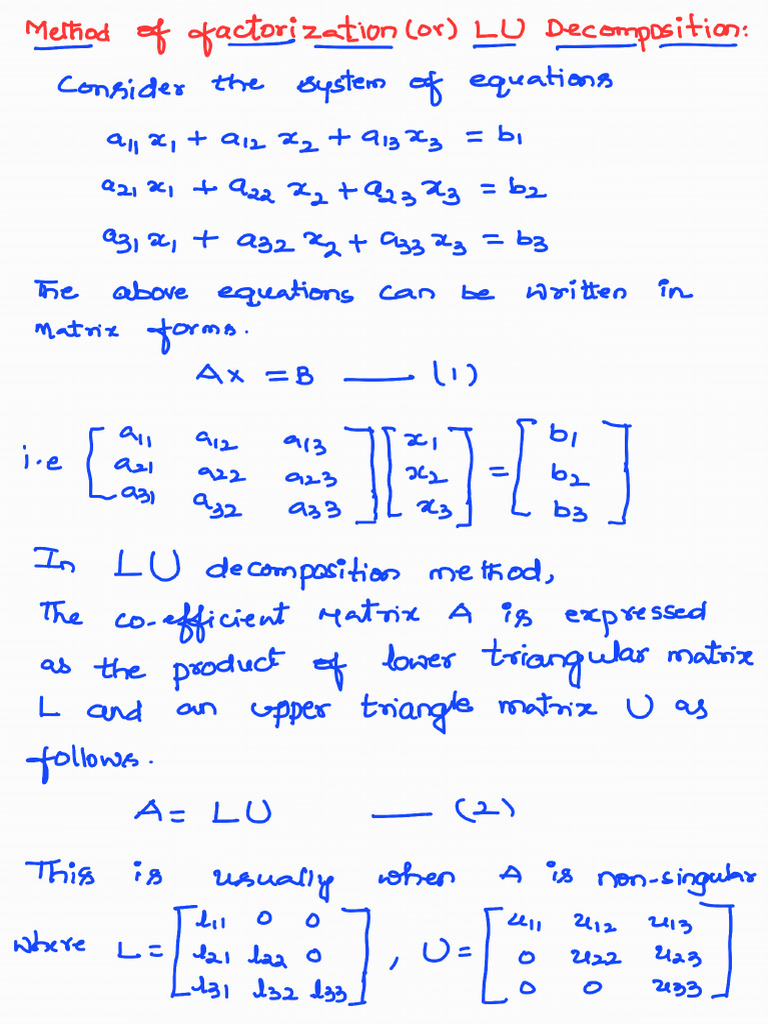 Method of factorization (or) LU Decomposition:
Consider the system of equations
a11 x1 + a12 x2 + a13 x3 = b1
a21 x1 + a22 x2 + a23 x3 = b2
a31 x1 + a32 x2 + a33 x3 = b3
The above equations can be written in
Matrix forms.
AX = B —— (1)
i.e [a11 a12 a13; a21 a22 a23; a31 a32 a33] [x1; x2; x3] = [b1; b2; b3]
In LU decomposition method,
The co-efficient Matrix A is expressed
as the product of lower triangular matrix
L and an upper triangle matrix U as
follows.
A = LU —— (2)
This is usually when A is non-singular
where L = [l11 0 0; l21 l22 0; l31 l32 l33], U = [u11 u12 u13; 0 u22 u23; 0 0 u33]